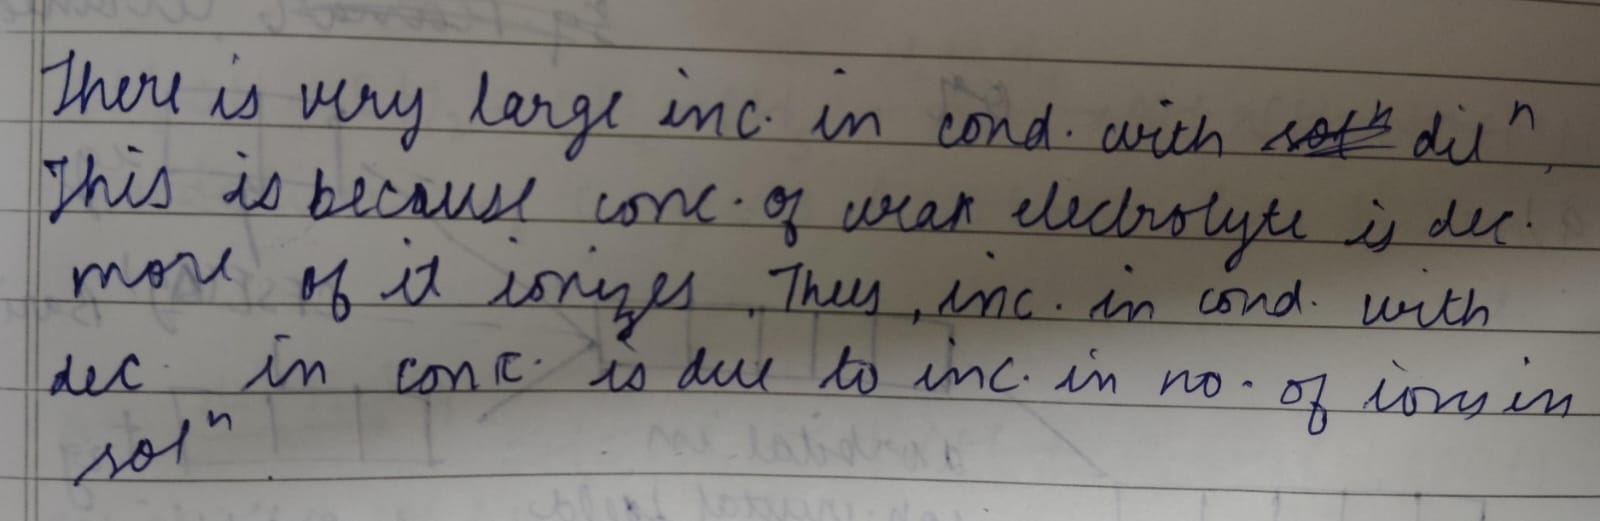 There is very large inc. in cond. with dilⁿ.
This is because conc. of weak electrolyte is dec.
more of it ionizes. Thus, inc. in cond. with
dec. in conc. is due to inc. in no. of ions in
solⁿ.